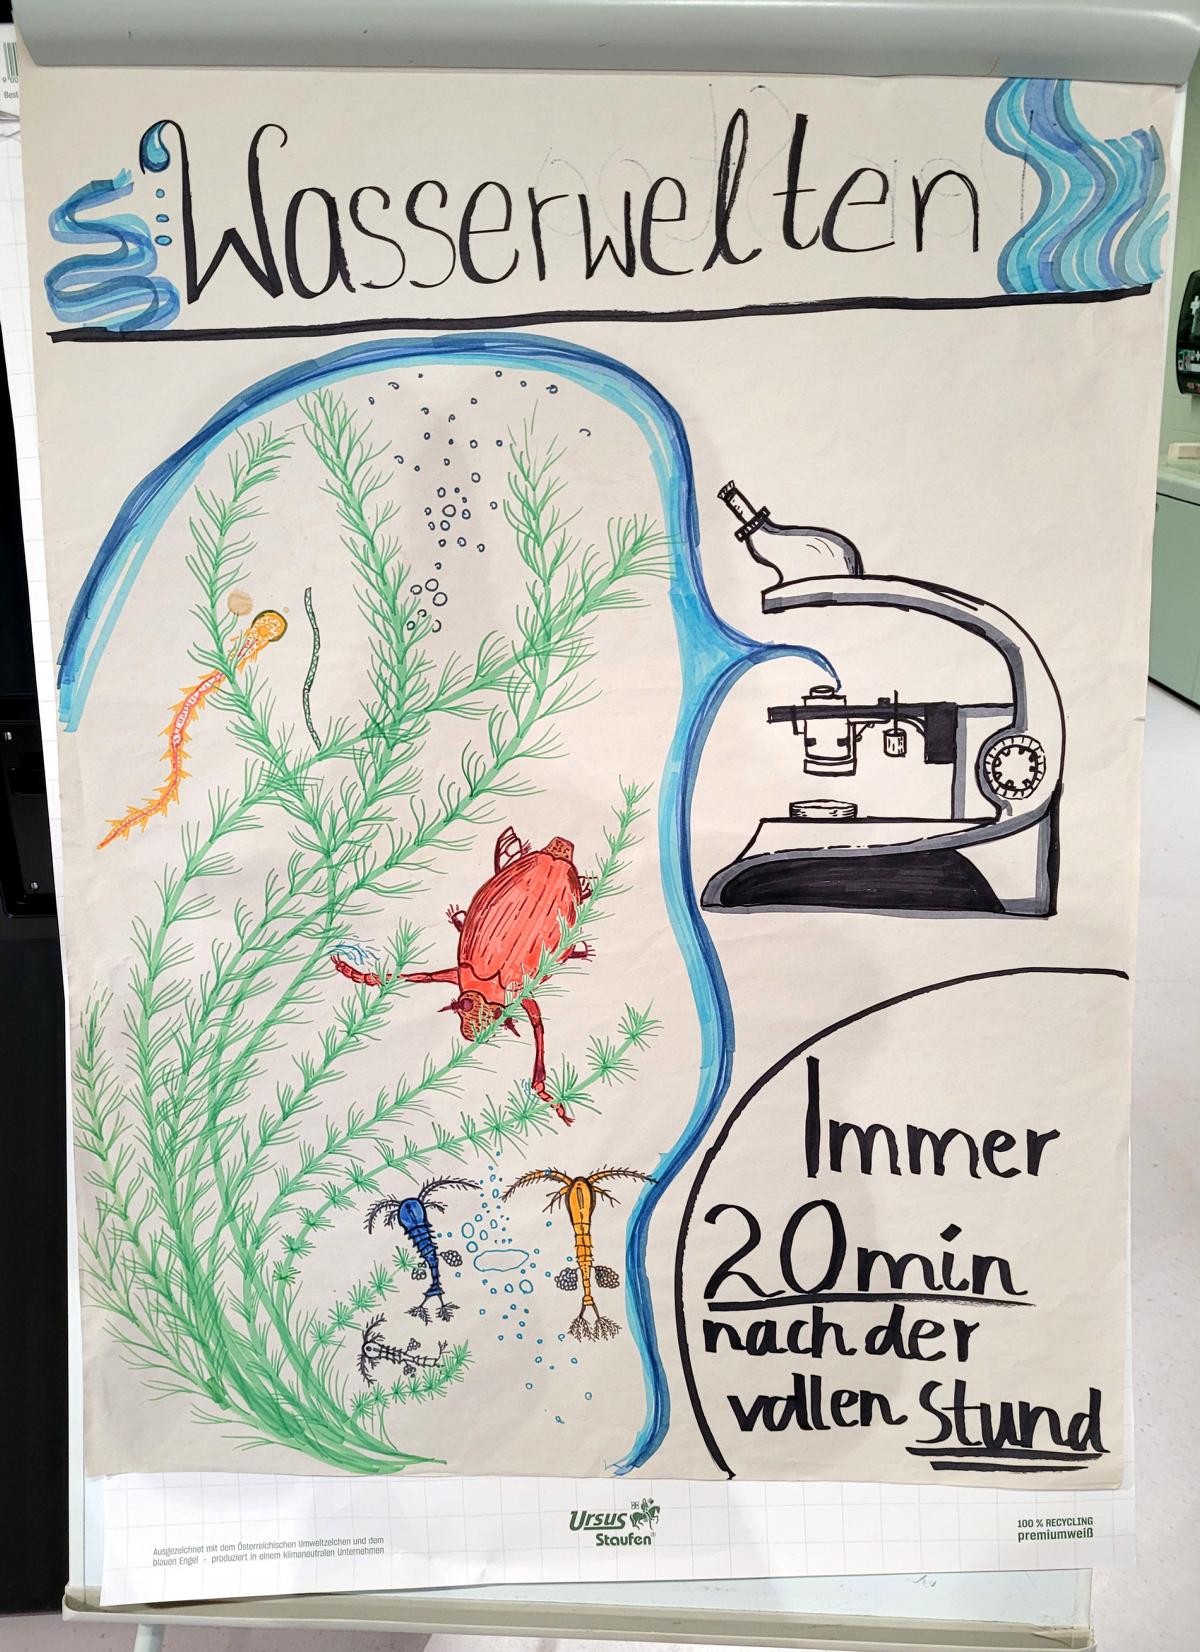 Wasserwelten
Immer
20min
nach der
vollen Stund
Ausgezeichnet mit dem Österreichischen Umweltzeichen und dem
blauen Engel · produziert in einem klimaneutralen Unternehmen
Ursus
Staufen®
100 % RECYCLING
premiumweiß